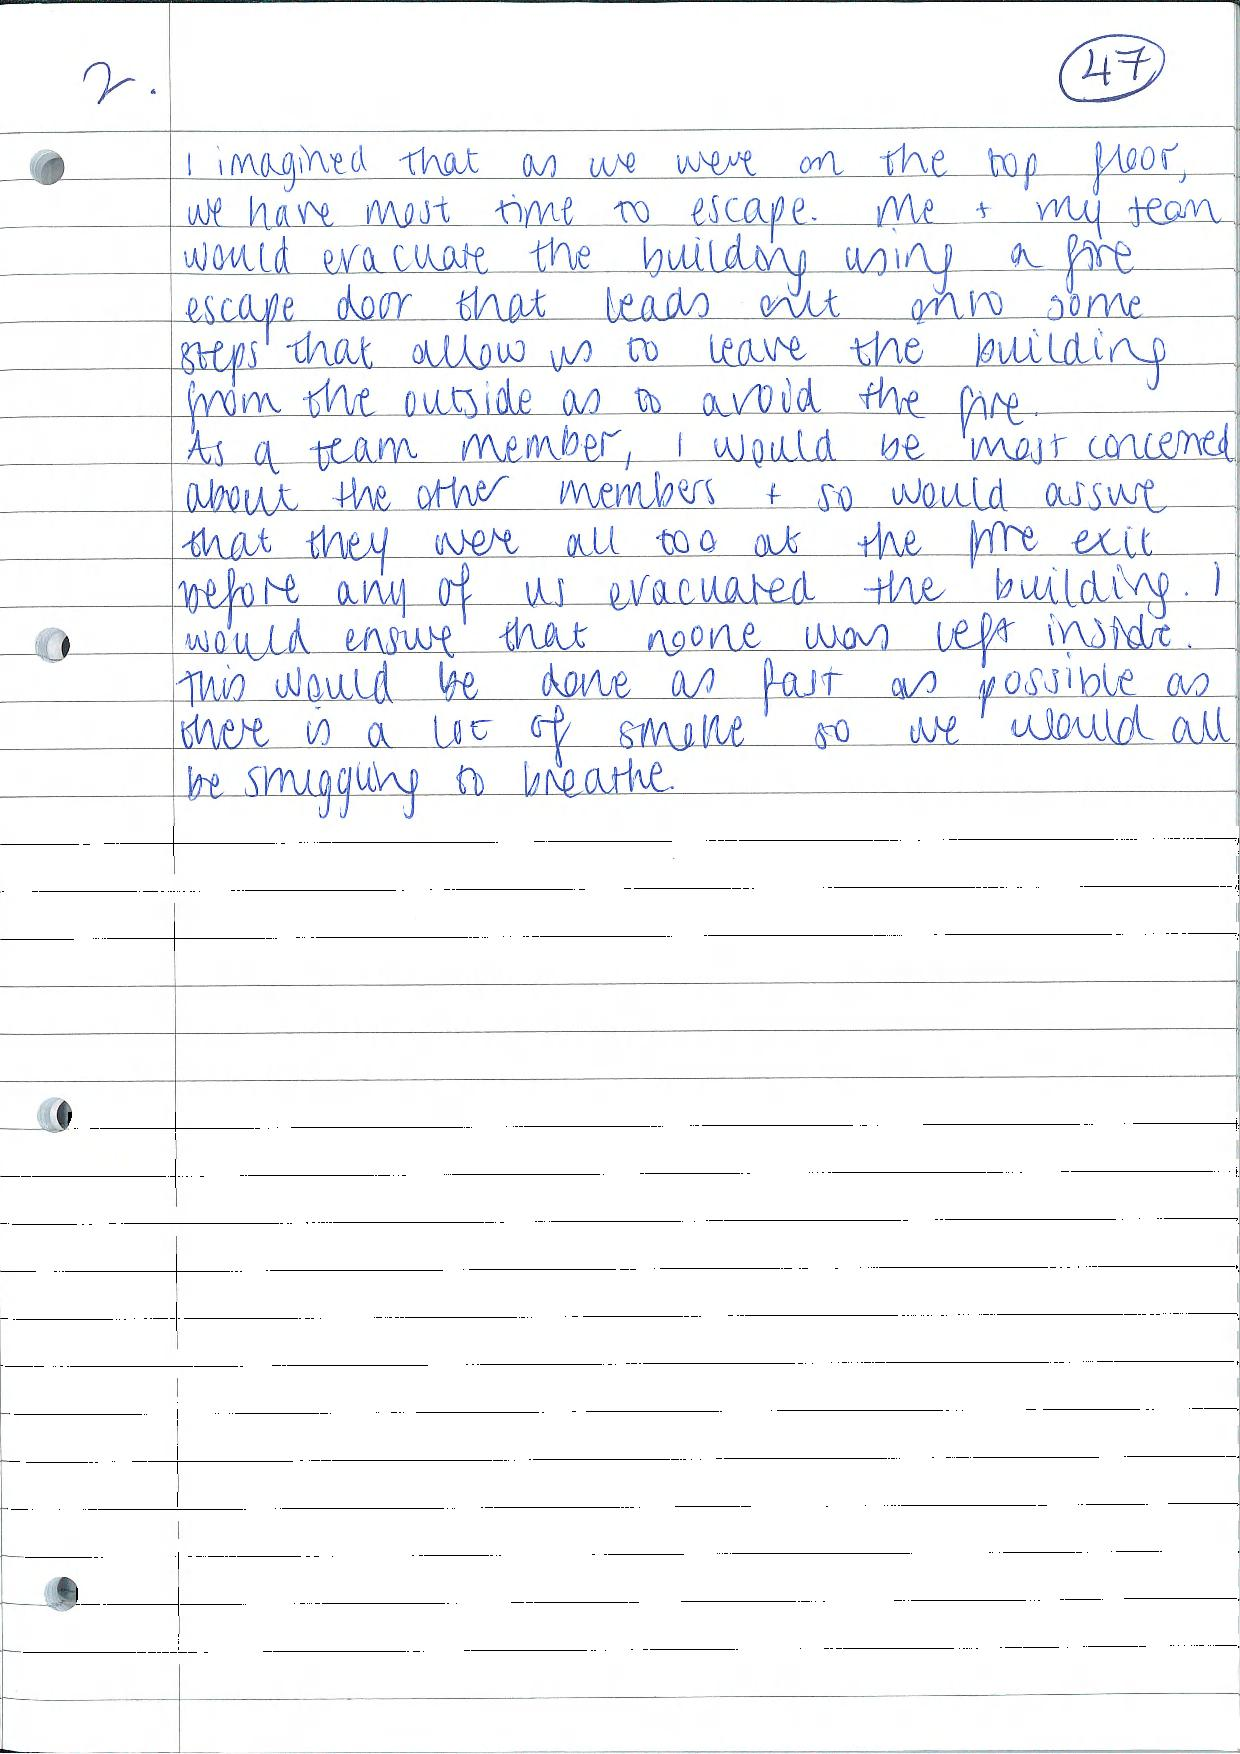 2.
47
I imagined that as we were on the top floor,
we have most time to escape. Me + my team
would evacuate the building using a fire
escape door that leads out onto some
steps that allow us to leave the building
from the outside as to avoid the fire.
As a team member, I would be most concerned
about the other members + so would assure
that they were all too at the fire exit
before any of us evacuated the building. I
would ensure that noone was left inside.
This would be done as fast as possible as
there is a lot of smoke so we would all
be struggling to breathe.